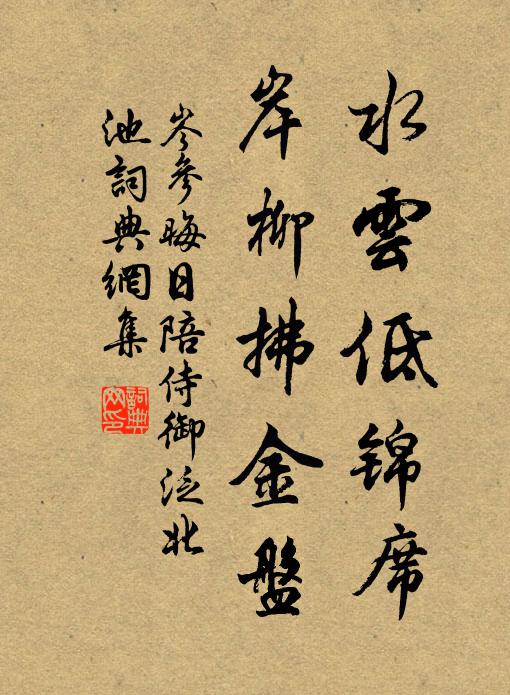 水雲低錦席
岸柳拂金盤
岑參晦日陪侍御泛北
池詞典網集
詞典
網印